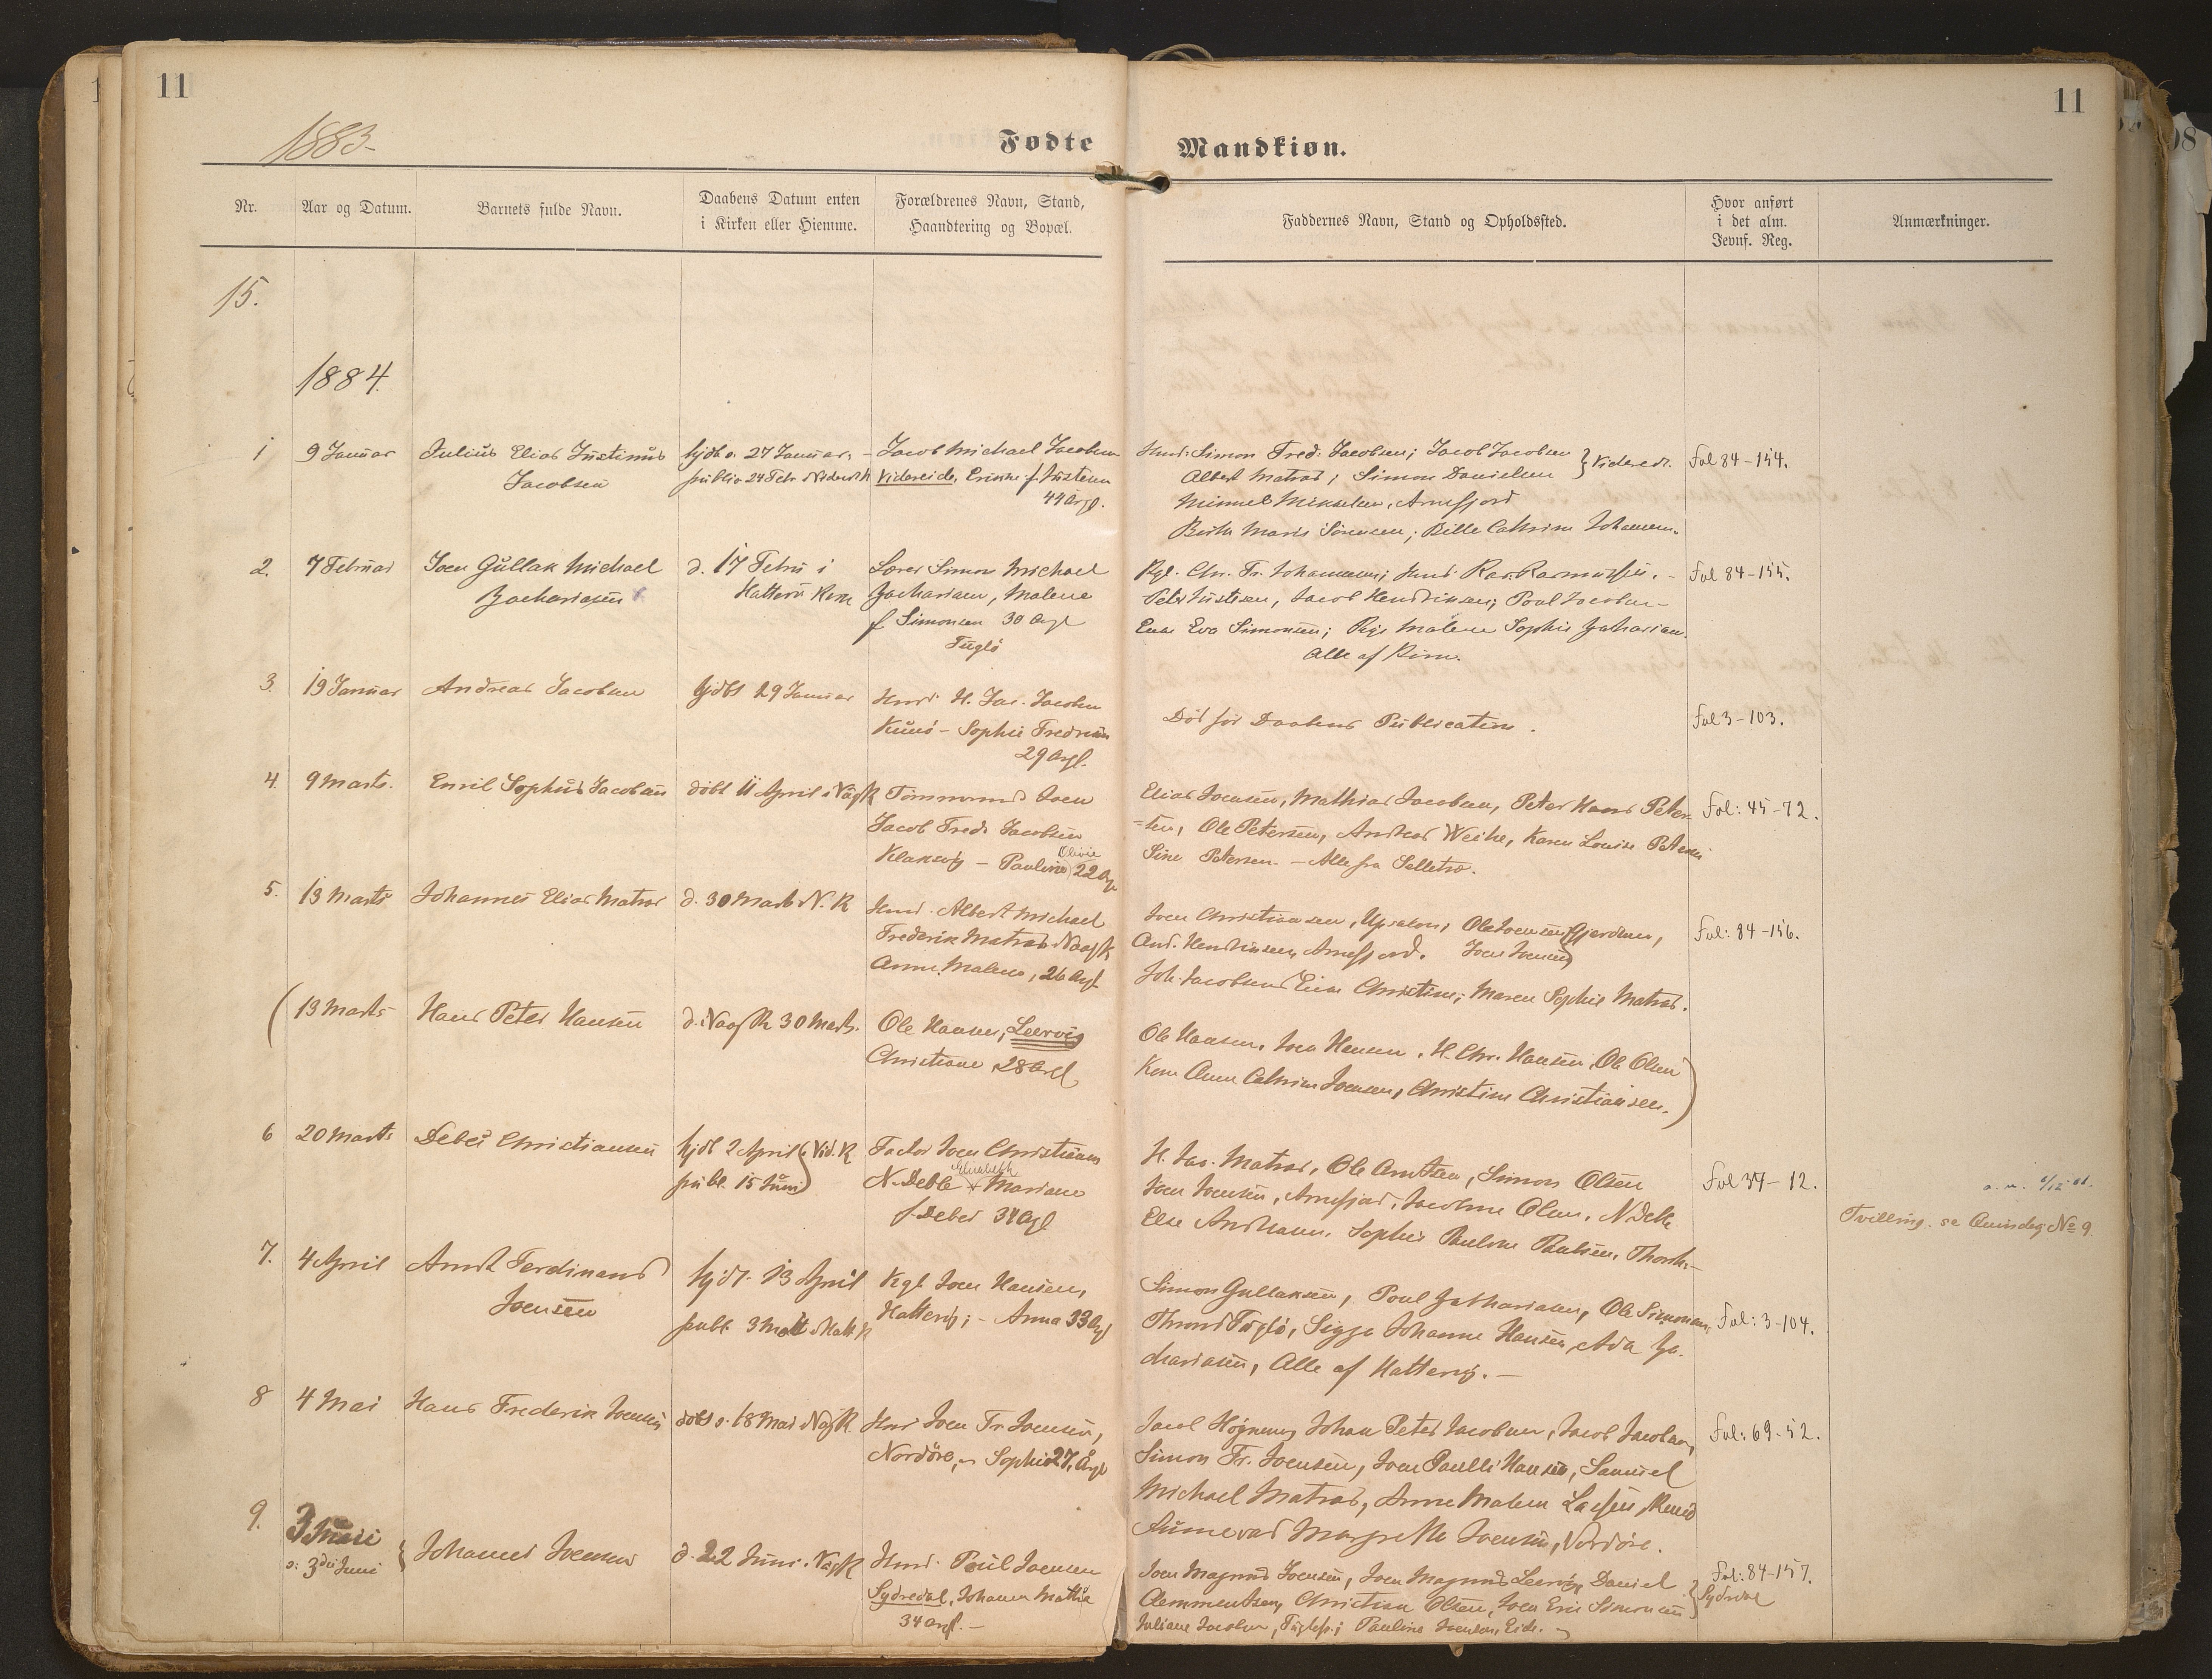 11
11
1883.
Fødte
Mandkiøn.
Nr.
Aar og Datum.
Barnets fulde Navn.
Daabens Datum enten
i Kirken eller Hiemme.
Forældrenes Navn, Stand,
Haandtering og Bopæl.
Faddernes Navn, Stand og Opholdssted.
Hvor anført
i det alm.
Jevnf. Reg.
Anmærkninger.
15.
1884.
1
9 Januar
Julius Elias Justinus
Jacobsen
hjdb. 27 Januar
public 24 Febr
Jacob Michael Jacobsen
Videreide,
44 Argl.
Simon Fred. Jacobsen; Jacob Jacobsen
Albert Matras; Simon Danielsen
Videred.
Mikkelsen, Arnefjord
Marie Simonsen; Bille Cathrine Johannesen
Fol 84-154.
2.
7 Februar
Joen Gullak Michael
Zachariasen
d. 17 Febru i
Hatterv Kirke
Lærer Simon Michael
Zachariasen, Malene
f Simonsen 30 Argl
Fuglø
Kgl. Chr. Fr. Johannesen; Rasmussen.
Peter Justesen, Jacob Hendriksen; Poul Jacobsen
Enke Eva Simonsen; Pige Malene Sophie Zachariasen.
Alle af Kirke.
Fol 84-155.
3.
19 Januar
Andreas Jacobsen
hjdbt 29 Januar
H. Jac. Jacobsen
Kunø - Sophie Fredrikke
29 Argl.
Død før Daabens Publication.
Fol 3-103.
4.
9 Marts.
Emil Sophus Jacobsen
døbt 11 April i Vaag K
Tømmermd Joen
Jacob Fredr Jacobsen
Klaksvig - Pauline Olivie 22 Arg
Elias Joensen, Mathias Jacobsen, Peter Hans Peter-
=sen, Ole Petersen, Andreas Weihe, Karen Louise Petersen
Sine Petersen. - Alle fra Selletræ.
Fol: 45-72.
5.
13 Marts
Johannes Elias Matras
d. 30 Marts N. K
Albert Michael
Frederik Matras
Anne Malene, 26 Argl
Joen Christiansen, Upsalom, Ole Joensen Gjerdum,
And. Hendriksen, Arnefjord. Joen Joensen
Joh. Jacobsens Enke Christine; Maren Sophie Matras.
Fol: 84-156.
13 Marts
Hans Peter Hansen
d. i Vaag K 30 Marts.
Ole Hansen, Leervig
Christiane 28 Argl
Ole Hansen, Joen Hansen, H. Chr. Hansen, Ole Olsen
Kone Anne Cathrine Joensen, Christine Christiansen.
6
20 Marts
Debes Christiansen
hjdb 2 April Vid. K
publ. 15 Juni
Factor Joen Christiansen
N. Deble Elisabeth Mariane
f. Debes 34 Argl
H. Jac. Matras, Ole Arntzen, Simon Olsen
Joen Joensen, Arnefjord, Jacobine Olsen, N. Deble
Else Andreasen, Sophie Pauline Poulsen, Thorsh.
Fol 37-12.
Tvilling. se Qvindeg № 9.
7.
4 April
Arndt Ferdinand
Joensen
hjdb. 13 April
publ. 3 Hatt. K
Kgl Joen Hansen,
Hattervig; - Anna 33 Argl
Simon Gullaksen, Poul Zachariasen, Ole Simonsen,
Thrond Fuglø, Sigga Johanne Hansen, Ada Za-
chariasen, Alle af Hattervig. -
Fol: 3-104.
8
4 Mai
Hans Frederik Joensen
døbt 18 Mai Vaag K
Joen Fr. Joensen,
Nordøre, - Sophie 27 Argl
Jacob Højgaard, Johan Peter Jacobsen, Jacob Jacobsen,
Simon Fr. Joensen, Joen Poulli Hansen, Samuel
Michael Matras, Anne Malene
Margrethe Joensen, Nordøre.
Fol: 69-52.
9.
3 Juni
o: 3die Juni
Johannes Joensen
d. 22 Juni. Vaag K
Poul Joensen
Sydredal, Johanne Mathie
34 Argl. -
Joen Magnus Joensen, Joen Magnus Leervig, Daniel
Clementsen, Christian Olsen, Joen Eric Simonsen
Sydredal
Juliane Jacobsen, Fuglefj.; Pauline Joensen, Eide.
Fol: 84-157.